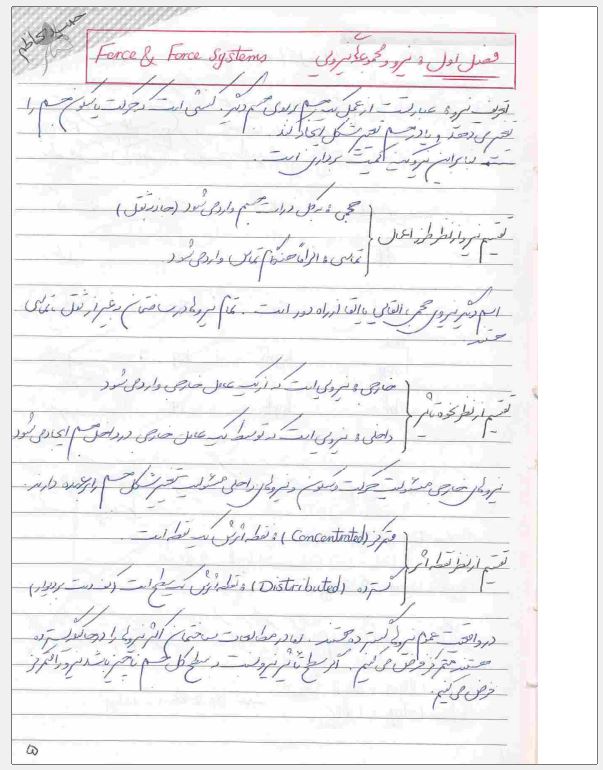 فصل اول : نیرو و مجموعه‌های نیرویی Force & Force Systems
تعریف نیرو : عبارتست از عمل یک جسم بر روی جسم دیگر. کنشی است که حرکت یا سکون جسم را
تغییر می دهد و یا در جسم تغییر شکل ایجاد کند
بنابراین نیرو یک کمیت برداری است.
تقسیم نیرو از نظر طرز اعمال
حجمی : بر کل ذرات جسم وارد می شود (جاذبه ثقل)
تماسی : الزاماً هنگام تماس وارد می شود
اسم دیگر نیروی حجمی، القایی یا القا از راه دور است. تمام نیروها در ساختمان به غیر از ثقل، تماسی
هستند
تقسیم از نظر نحوه تاثیر
خارجی : نیرویی است که از یک عامل خارجی وارد می شود
داخلی : نیرویی است که توسط یک عامل خارجی در داخل جسم ایجاد می شود
نیروهای خارجی مسئولیت حرکت و سکون و نیروهای داخلی مسئولیت تغییر شکل جسم را بر عهده دارند.
تقسیم از نظر نقطه اثر
متمرکز (Concentrated) : نقطه اثرش یک نقطه است.
گسترده (Distributed) : نقطه اثرش یک سطح است (کف دست بر دیوار)
در واقعیت عموم نیروها گسترده هستند. اما در مطالعات ساختمان اکثر نیروها را در حالیکه گسترده
هستند متمرکز فرض می کنیم. اگر سطح تاثیر نیرو نسبت به سطح کل جسم ناچیز باشد نیرو را متمرکز
فرض می کنیم.
۵